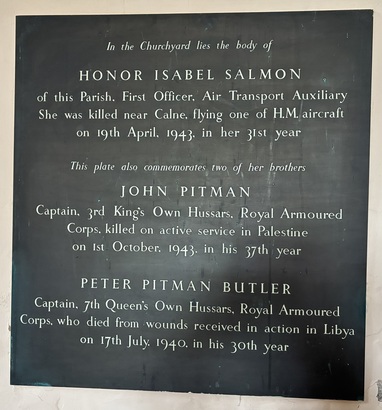 In the Churchyard lies the body of
HONOR ISABEL SALMON
of this Parish, First Officer, Air Transport Auxiliary
She was killed near Calne, flying one of H.M. aircraft
on 19th April, 1943, in her 31st year
This plate also commemorates two of her brothers
JOHN PITMAN
Captain, 3rd King's Own Hussars, Royal Armoured
Corps, killed on active service in Palestine
on 1st October, 1943, in his 37th year
PETER PITMAN BUTLER
Captain, 7th Queen's Own Hussars, Royal Armoured
Corps, who died from wounds received in action in Libya
on 17th July, 1940, in his 30th year